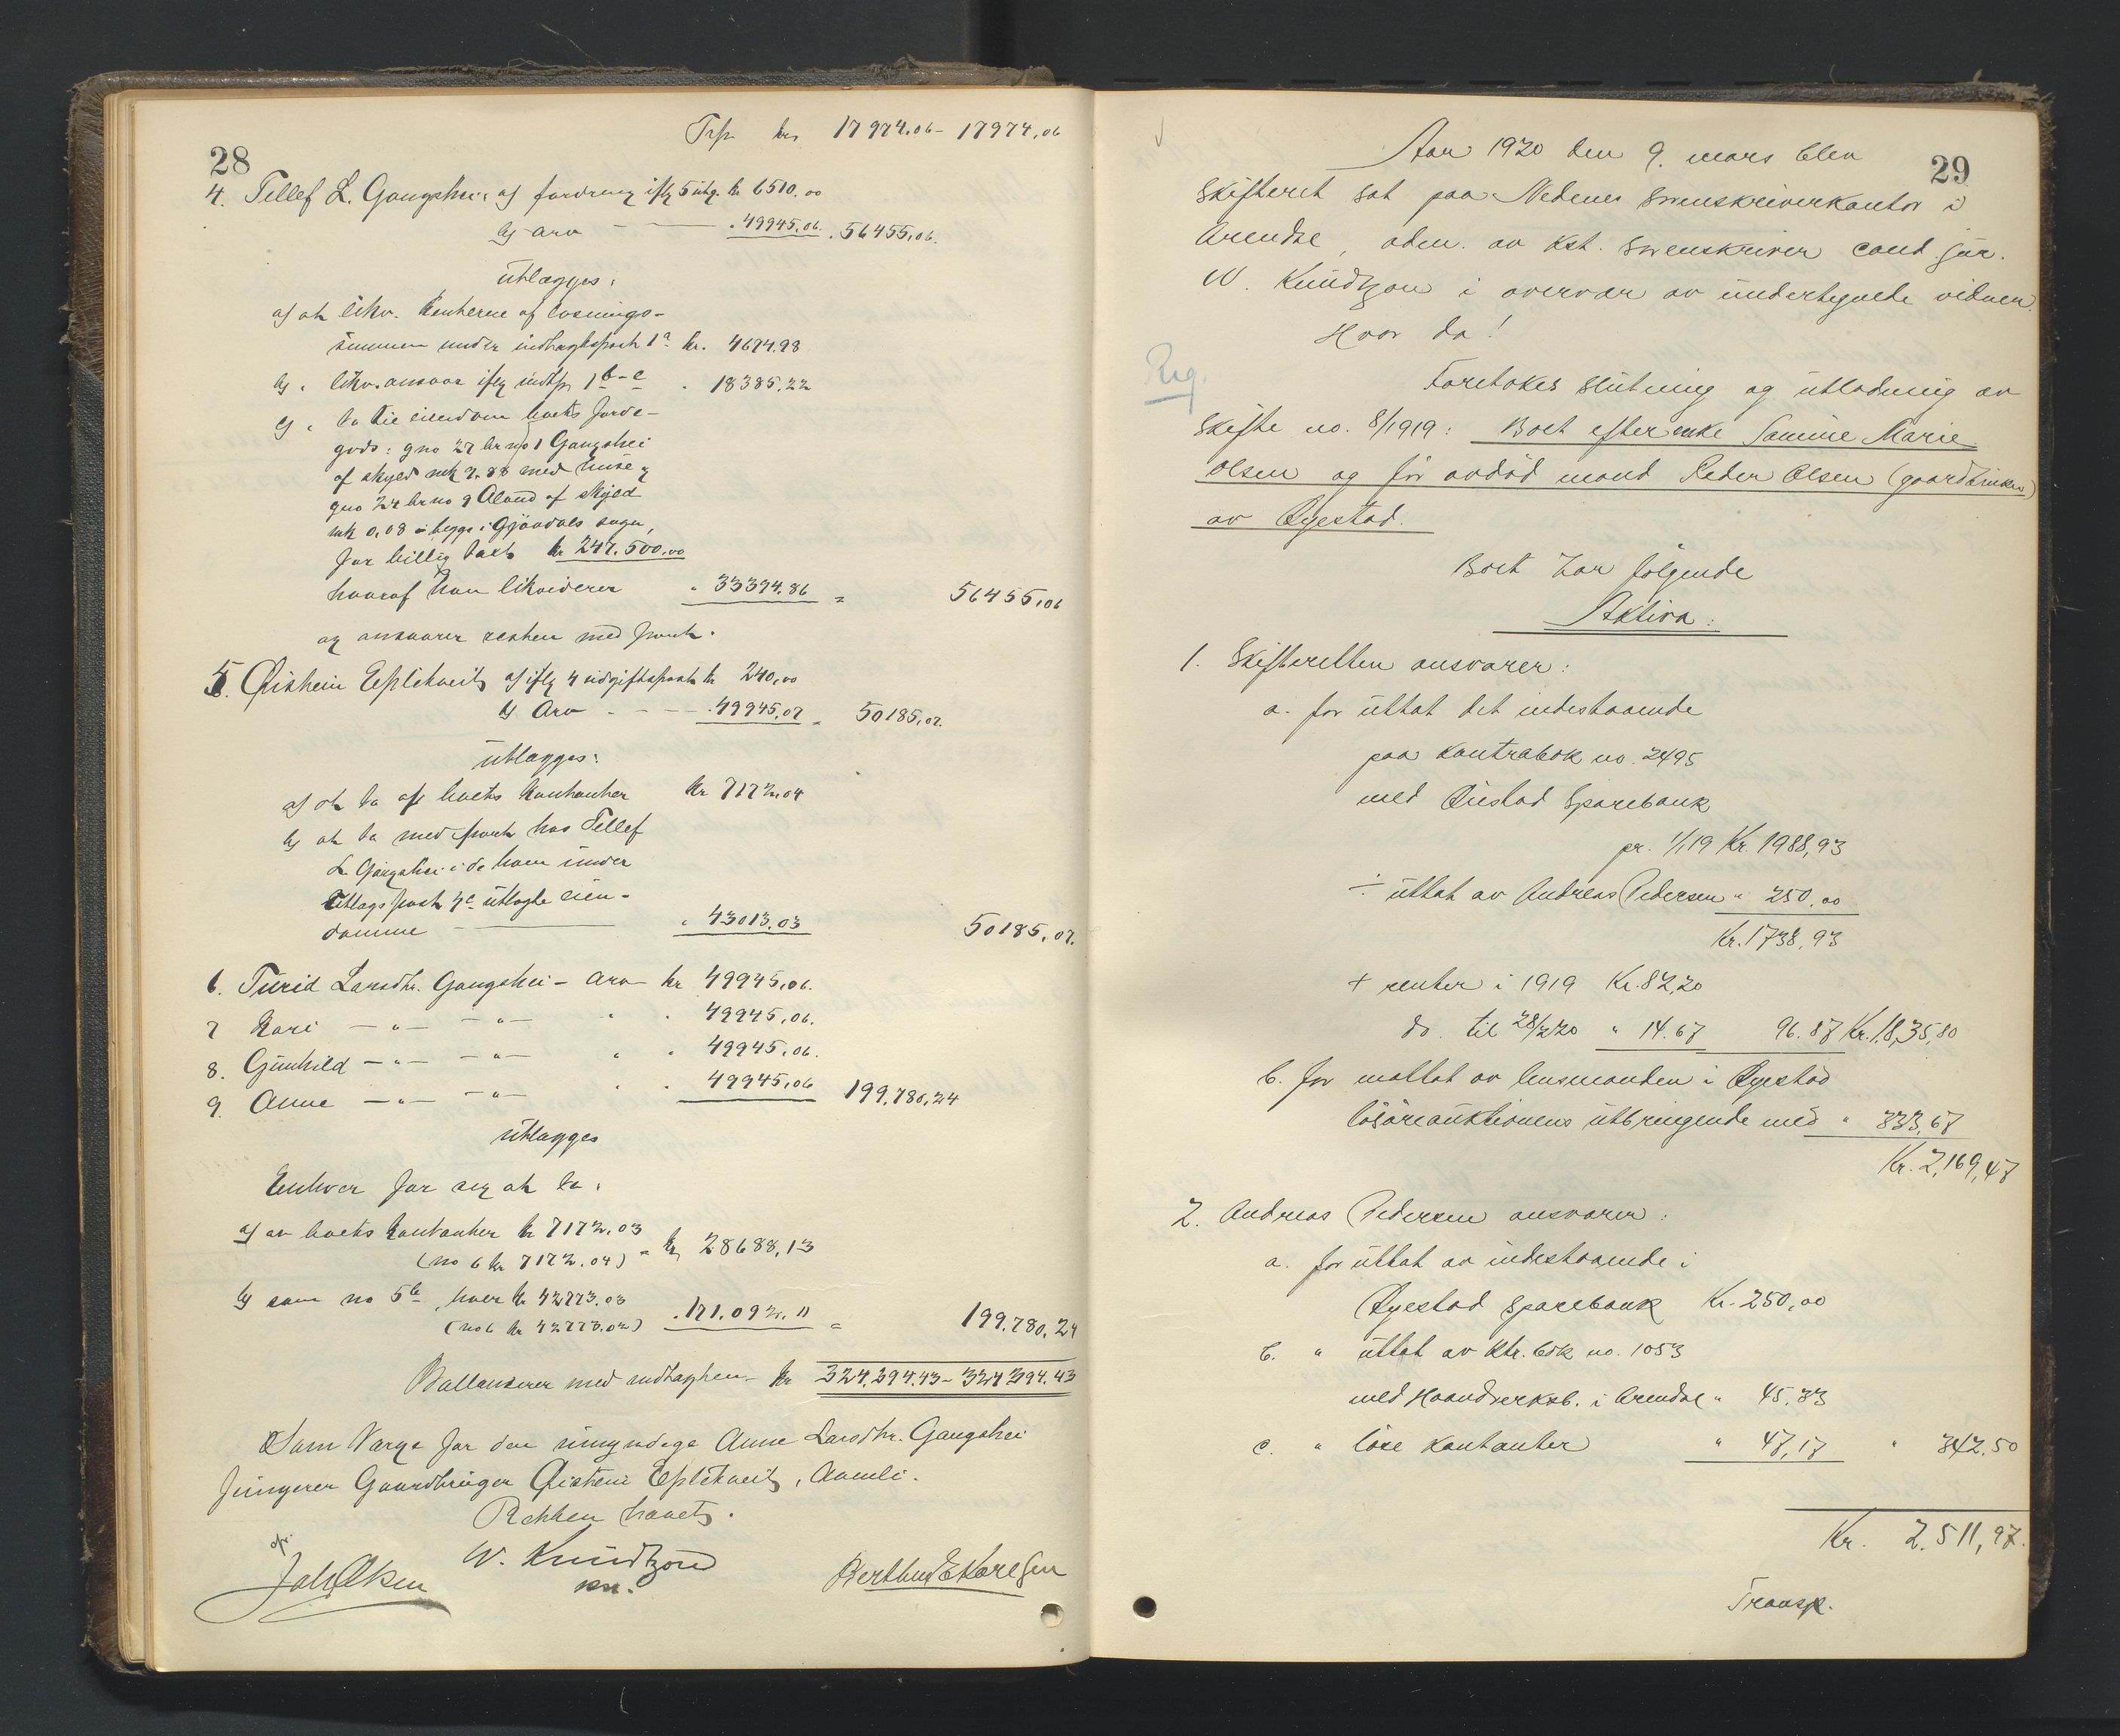 28
Trp. kr 17974.06 - 17974,06
4. Tellef L. Gaugshei: a) fordring iflg 5 utg. kr 6510.00
b) arv - — . 49945,06. . 56455,06.
Utlægges:
a) at likv. renterne af løsnings-
summen under indtægtspost 1a kr. 4674.98
b) " likv. ansvar iflg indtp. 1 b-c . 18385,22
c) " ta tie eiendom boets jorde-
gods: gno 27 brno 1 Gaugshei
af skyld mk 7.88 med huse &
gno 24 brno 9 Åland af skyld
mk 0,08 - begge i Gjøvdals sogn,
for billig takst kr 247.500,00
hvoraf han likviderer . 33394,86 = 56455,06
og ansvarer resten med pant.
5. Øistein Eplitveit a) iflg 4 udgiftspost kr 240,00
b) Arv - - - . 49945,07 = 50185,07.
Utlægges:
a) at ta af boets kontanter kr 7172,04
b) at ta med pant hos Tellef
L. Gaugshei i de ham under
Utlagspost 4c utlagte eien-
domme — " 43013,03 50185,07.
6. Turid Larsdtr. Gaugshei - arv kr 49945,06.
7 Kari — " — — " — " . 49945,06.
8. Gunhild — " — — " — " " 49945,06.
9. Anne — " — — " — " . 49945,06 199,780,24
Utlægges
Enhver for seg at ta:
a) av boets kontanter kr 7172,03
(no 6 kr 7172.04) = kr 28688,13
b) som no 5b, hver kr 42773.03
(no 6 kr 42773.02) . 171.092.11 = 199.780,24
Ballanserer med indtægten - kr 324.394.43 - 324394.43
Som Værge for den umyndige Anne Larsdtr. Gaugshei
fungerer Gaardbruger Øistein Eplitveit, Aamli.
Retten hævet.
W. Knudtzon
kst.
Joh Olsen
Berthus E Karlsen
29
Aar 1920 den 9. mars blev
skifteret sat paa Nedenes sorenskriverkontor i
Arendal, adm. av kst. sorenskriver cand. jur.
W. Knudtzon i overvær av undertegnede vidner.
Hvor da!
Reg.
Foretokes slutning og utlodning av
skifte no. 8/1919: Boet efter enke Samine Marie
Olsen og før avdød mand Peder Olsen (gaardbruker)
av Øyestad.
Boet har følgende
Aktiva:
1. Skifteretten ansvarer:
a. for uttat det indestaaende
paa kontrabok no. 2495
med Øiestad Sparebank
pr. 1/1 19 Kr. 1988,93
÷ uttat av Andreas Pedersen " 250,00
Kr. 1738,93
+ renter i 1919 Kr. 82,20
do. til 28/2 20 " 14.67 96.87 Kr. 1,835,80
b. for mottat av lensmanden i Øyestad
løsøreauktionens utbringende med " 333,67
Kr. 2,169,47
2. Andreas Pedersen ansvarer:
a. for uttat av indestaaende i
Øyestad Sparebank Kr. 250,00
b. " uttat av ktr. bok no. 1053
med Haandverksb. i Arendal " 45,33
c. " løse kontanter " 47,17 " 342.50
Kr. 2.511,97.
Transp.